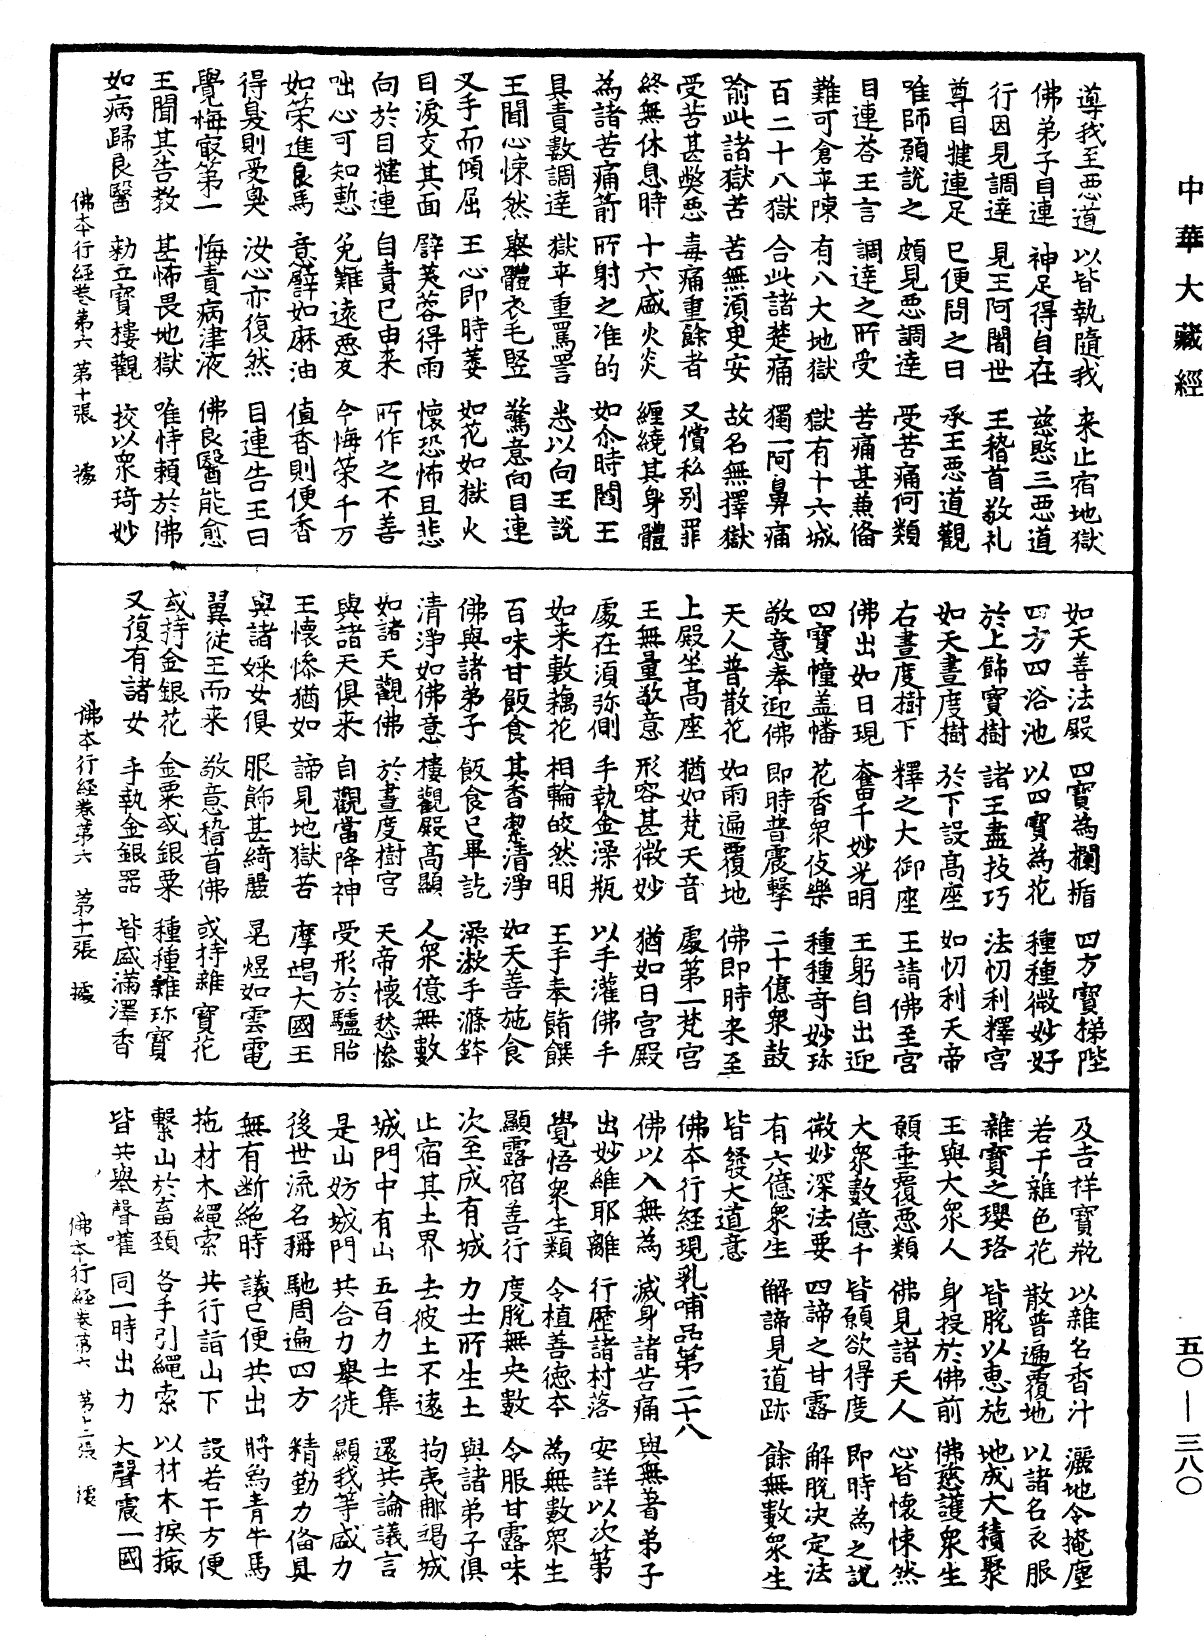 中華大藏經
導我至惡道　以皆執隨我　来止宿地獄
佛弟子目連　神足得自在　慈愍三惡道
行因見調達　見王阿闍世　王稽首敬礼
尊目揵連足　已便問之曰　承王惡道觀
唯師願說之　頗見惡調達　受苦痛何類
目連荅王言　調達之所受　苦痛甚兼俻
難可倉卒陳　有八大地獄　獄有十六城
百二十八獄　合此諸楚痛　獨一阿鼻痛
喻此諸獄苦　苦無湏臾安　故名無擇獄
受苦甚弊惡　毒痛重餘者　又償私别罪
終無休息時　十六盛火炎　纏繞其身體
為諸苦痛箭　所射之准的　如尒時閻王
具責數調達　獄卒重罵詈　悉以向王說
王聞心悚然　舉體衣毛竪　驚意向目連
叉手而傾屈　王心即時萎　如花如獄火
目淚交其面　譬芙蓉得雨　懷恐怖且悲
向於目揵連　自責已由来　所作之不善
咄心可知慙　免難遠惡友　今悔策千万
如策進良馬　意譬如麻油　值香則便香
得臭則受臭　汝心亦復然　目連告王曰
覺悔㝡第一　悔責病津液　佛良醫能愈
王聞其告教　甚怖畏地獄　唯恃賴於佛
如病歸良醫　勑立寶樓觀　挍以衆琦妙
佛本行經卷第六　第十張　據
如天善法殿　四寶為欄楯　四方寶梯陛
四方四浴池　以四寶為花　種種微妙好
於上飾寶樹　諸王盡技巧　法忉利釋宫
如天晝度樹　於下設高座　如忉利天帝
右晝度樹下　釋之大御座　王請佛至宫
佛出如日現　奮千妙光明　王躬自出迎
四寶幢盖幡　花香衆伎樂　種種奇妙珎
敬意奉迎佛　即時普震擊　二十億衆鼓
天人普散花　如雨遍覆地　佛即時来至
上殿坐高座　猶如梵天音　處第一梵宫
王無量敬意　形容甚微妙　猶如日宫殿
處在須弥側　手執金澡瓶　以手灌佛手
如来敷藕花　相輪皎然明　王手奉餚饌
百味甘飯食　其香絜清淨　如天善施食
佛與諸弟子　飯食已畢訖　澡漱手滌鉢
清淨如佛意　樓觀殿高顯　人衆億無數
如諸天觀佛　於晝度樹宫　天帝懷愁慘
與諸天俱来　自觀當降神　受形於驢胎
王懷慘猶如　諦見地獄苦　摩竭大國王
與諸婇女俱　服飾甚綺麗　晃煜如雲電
翼從王而来　敬意稽首佛　或持雜寶花
或持金銀花　金粟或銀粟　種種雜珎寶
又復有諸女　手執金銀器　皆盛滿澤香
佛本行經卷第六　第十一張　據
及吉祥寶瓶　以雜名香汁　灑地令掩塵
若干雜色花　散普遍覆地　以諸名衣服
雜寶之瓔珞　皆脫以惠施　地成大積聚
王與大衆人　身投於佛前　佛慈護衆生
願垂覆惡類　佛見諸天人　心皆懷悚然
大衆數億千　皆願欲得度　即時為之說
微妙深法要　四諦之甘露　解脫决定法
有六億衆生　解諦見道跡　餘無數衆生
皆發大道意
佛本行經現乳哺品第二十八
佛以入無為　滅身諸苦痛　與無著弟子
出妙維耶離　行歷諸村落　安詳以次第
覺悟衆生類　令植善德本　為無數衆生
顯露宿善行　度脫無央數　令服甘露味
次至成有城　力士所生土　與諸弟子俱
止宿其土界　去彼土不遠　拘夷那竭城
城門中有山　五百力士集　還共論議言
是山妨城門　共合力舉徙　顯我等盛力
後世流名稱　馳周遍四方　精勤力俻具
無有断絶時　議已便共出　將象青牛馬
拖材木繩索　共行詣山下　設若干方便
繫山於畜頸　各手引繩索　以材木捩撥
皆共舉聲嚾　同一時出力　大聲震一國
佛本行經卷第六　第十二張　據
五〇—三八〇